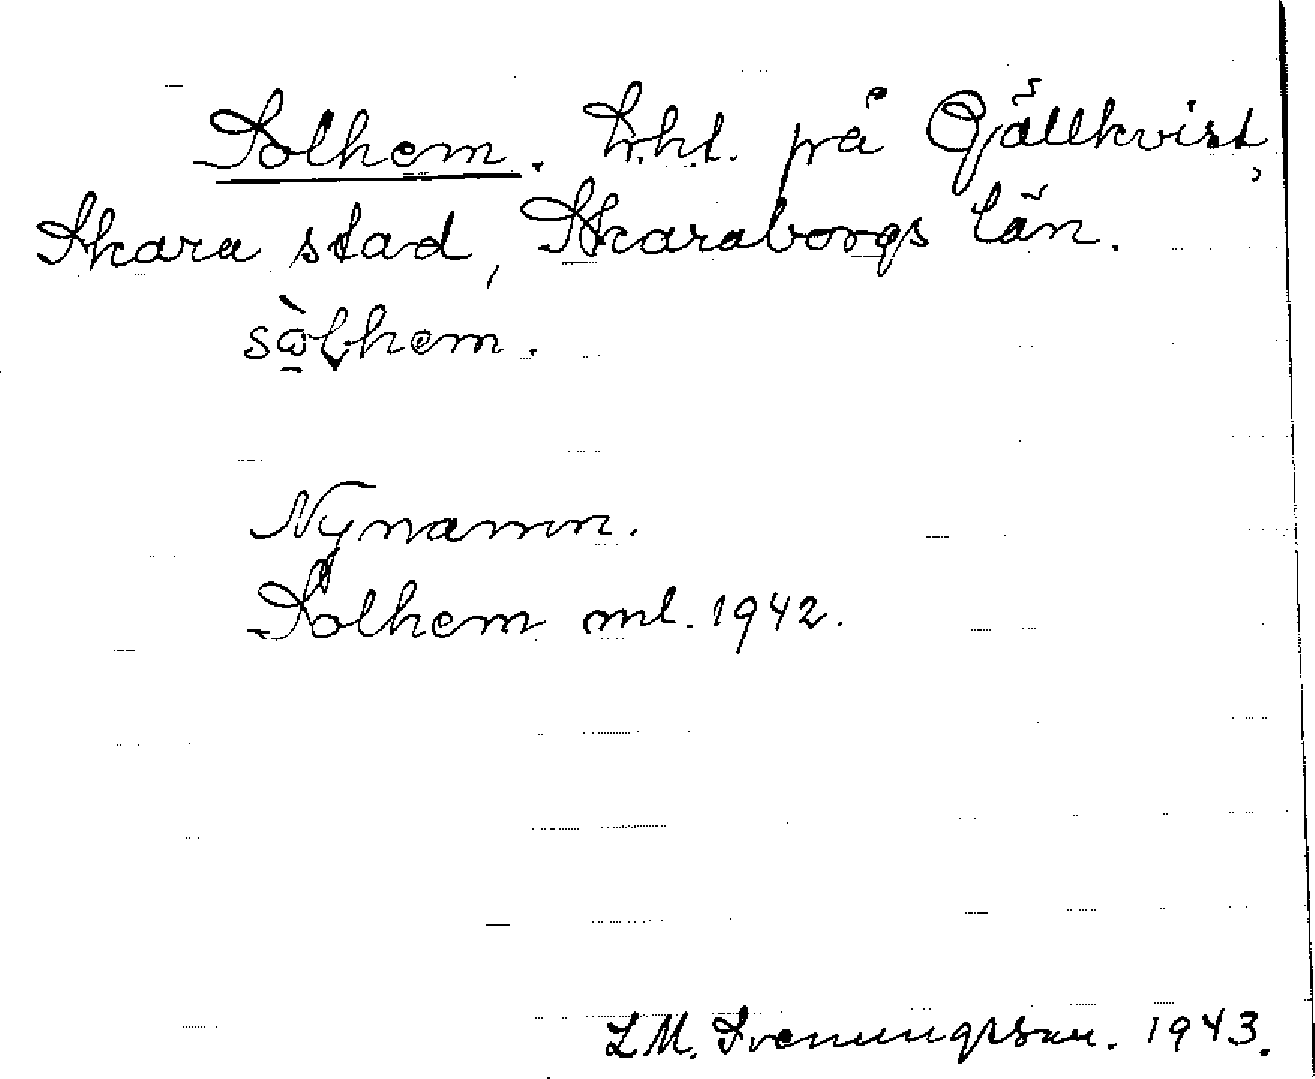 Solhem. Lht. på Gjällkvist,
Skara stad, Skaraborgs län.
Nynamn.
Solhem ml. 1942.
L.M. Svenungsson. 1943.